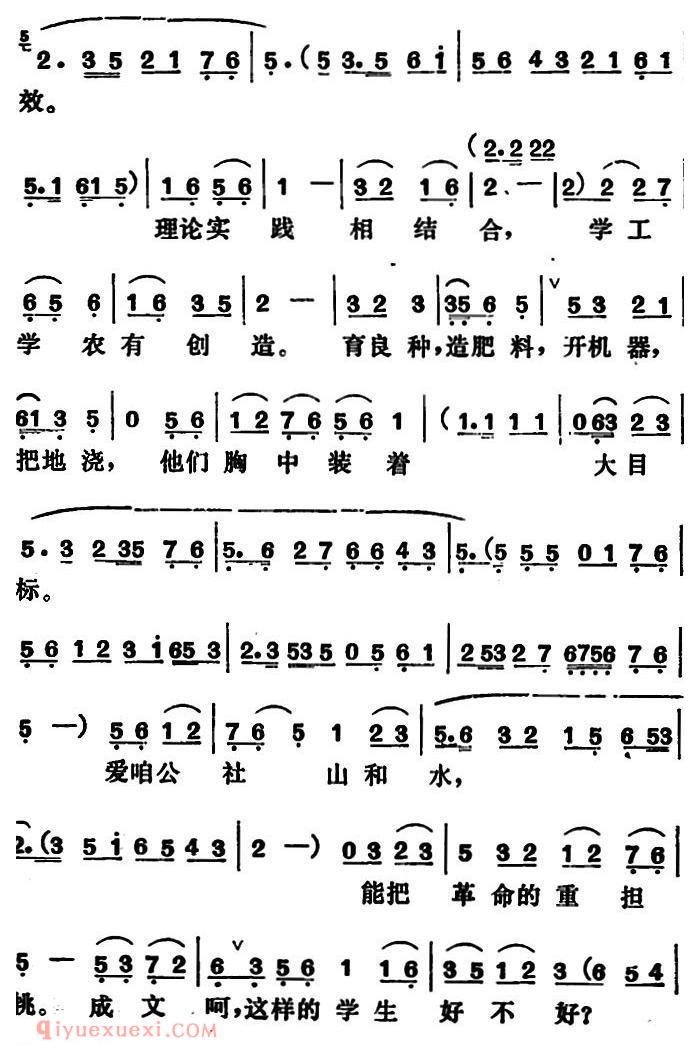 5 2. 35 21 76 | 5.(5 3.5 6i | 56 43 21 61
效。
(2.2 22
5.1 61 5) | 16 56 | 1 — | 32 16 | 2. — | 2) 2 27
理论实 践 相 结 合, 学 工
65 6 | 16 35 | 2 — | 32 3 | 35 6 5 | V 53 21
学 农 有 创 造。 育良 种,造肥 料,开机 器,
61 3 5 | 0 56 | 12 76 56 1 | (1.1 1 1 | 0 63 23
把地 浇, 他们 胸 中 装 着 大 目
5.3 2 35 76 | 5.6 27 66 43 | 5.(5 55 01 76
标。
56 12 3i 65 3 | 2.3 53 5 05 61 | 2 53 27 6756 76
5 —) 56 12 | 76 5 1 23 | 5.6 32 15 6 53
爱咱公 社 山 和 水,
2.(3 5i 65 43 | 2 —) 03 23 | 5 32 12 76
能把 革 命的 重 担
5 — 53 72 | V 6 3 56 1 16 | 35 12 3 (6 54
挑。 成 文 呵,这样的 学 生 好 不 好?
qiyuexuexi.com